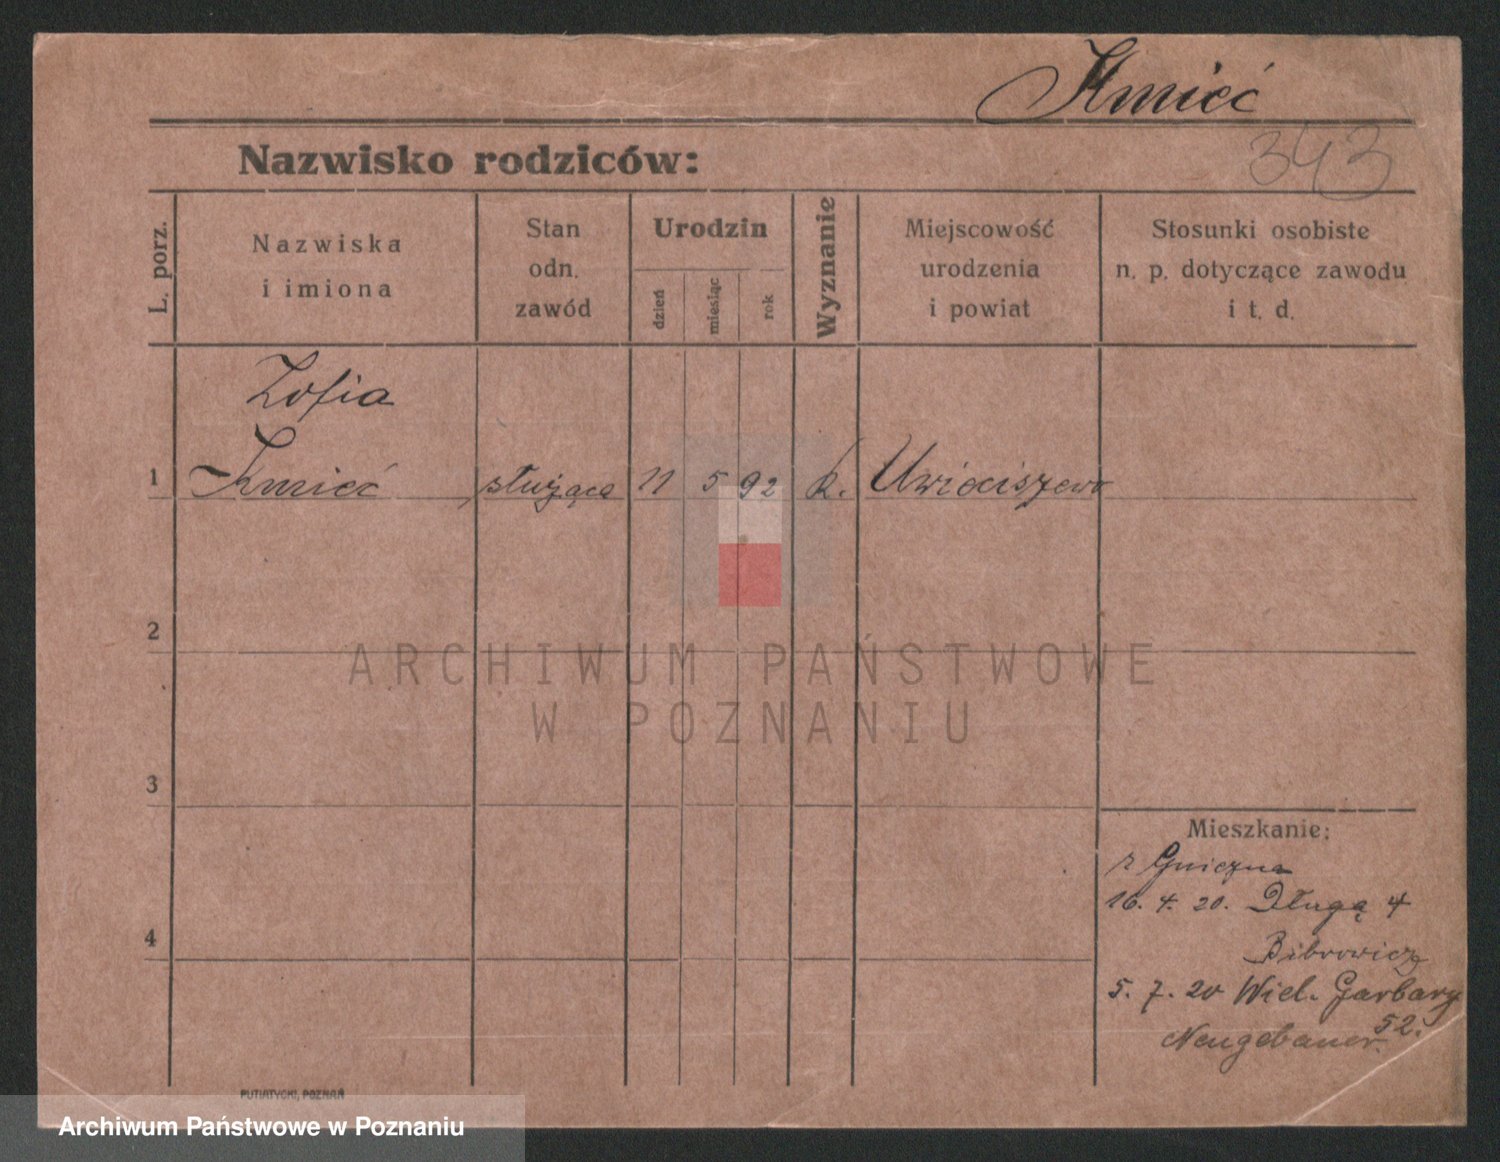 Kmieć
343
Nazwisko rodziców:
L. porz.
Nazwiska
i imiona
Stan
odn.
zawód
Urodzin
dzień
miesiąc
rok
Wyznanie
Miejscowość
urodzenia
i powiat
Stosunki osobiste
n. p. dotyczące zawodu
i t. d.
Zofia
1 Kmieć służąca 11 5 92 k. Uwieciszewo
2
3
4
ARCHIWUM PAŃSTWOWE
W POZNANIU
Mieszkanie:
z Gniezna
16. 4. 20. Długą 4
Bibrowicz
5. 7. 20 Wiel. Garbary
52.
Neugebauer.
PUTIATYCKI, POZNAŃ
Archiwum Państwowe w Poznaniu